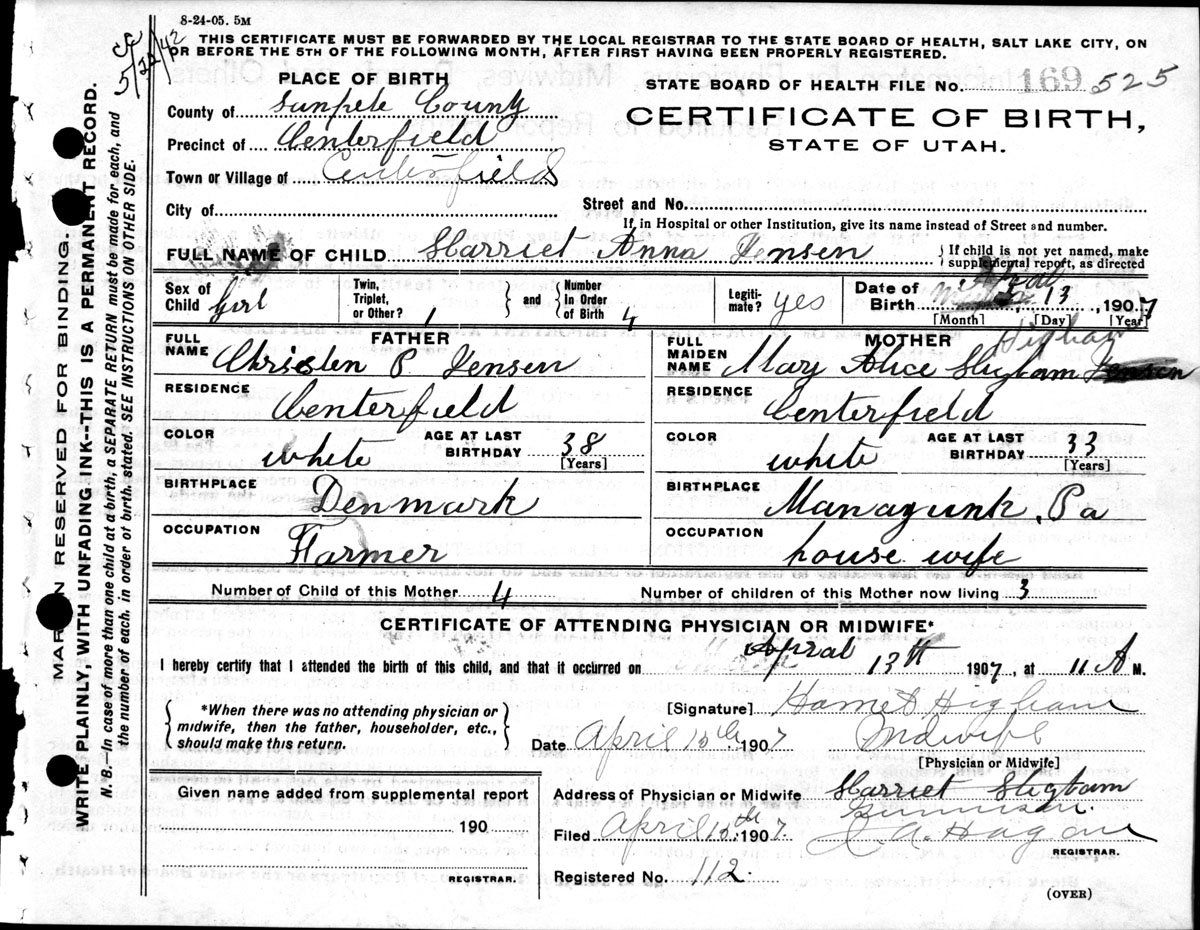 8-24-05. 5M
THIS CERTIFICATE MUST BE FORWARDED BY THE LOCAL REGISTRAR TO THE STATE BOARD OF HEALTH, SALT LAKE CITY, ON
OR BEFORE THE 5TH OF THE FOLLOWING MONTH, AFTER FIRST HAVING BEEN PROPERLY REGISTERED.
5/22/42
MARGIN RESERVED FOR BINDING.
WRITE PLAINLY, WITH UNFADING INK--THIS IS A PERMANENT RECORD.
N. B.—In case of more than one child at a birth, a SEPARATE RETURN must be made for each, and
the number of each, in order of birth, stated. SEE INSTRUCTIONS ON OTHER SIDE.
PLACE OF BIRTH
STATE BOARD OF HEALTH FILE No. 169 525
County of Sanpete County
CERTIFICATE OF BIRTH,
Precinct of Centerfield
STATE OF UTAH.
Town or Village of Centerfield
City of Street and No.
If in Hospital or other Institution, give its name instead of Street and number.
FULL NAME OF CHILD Harriet Anna Jensen { If child is not yet named, make
supplemental report, as directed
Sex of Child Girl Twin, Triplet, or Other? 1 and Number In Order of Birth 4 Legitimate? yes Date of Birth Apral 13, 1907
[Month] [Day] [Year]
FATHER MOTHER Higham
FULL NAME Christen P Jensen FULL MAIDEN NAME Mary Alice Higham Jensen
RESIDENCE Centerfield RESIDENCE Centerfield
COLOR white AGE AT LAST BIRTHDAY 38 [Years] COLOR white AGE AT LAST BIRTHDAY 33 [Years]
BIRTHPLACE Denmark BIRTHPLACE Managunk, Pa
OCCUPATION Farmer OCCUPATION house wife
Number of Child of this Mother 4 Number of children of this Mother now living 3
CERTIFICATE OF ATTENDING PHYSICIAN OR MIDWIFE*
I hereby certify that I attended the birth of this child, and that it occurred on Apral 13th 1907, at 11 A M.
*When there was no attending physician or
midwife, then the father, householder, etc.,
should make this return.
[Signature] Harriet Higham
Date April 1907 Midwife
[Physician or Midwife]
Given name added from supplemental report
190
REGISTRAR.
Address of Physician or Midwife Harriet Higham
Gunnison.
Filed April 1907
REGISTRAR.
Registered No. 112.
(OVER)